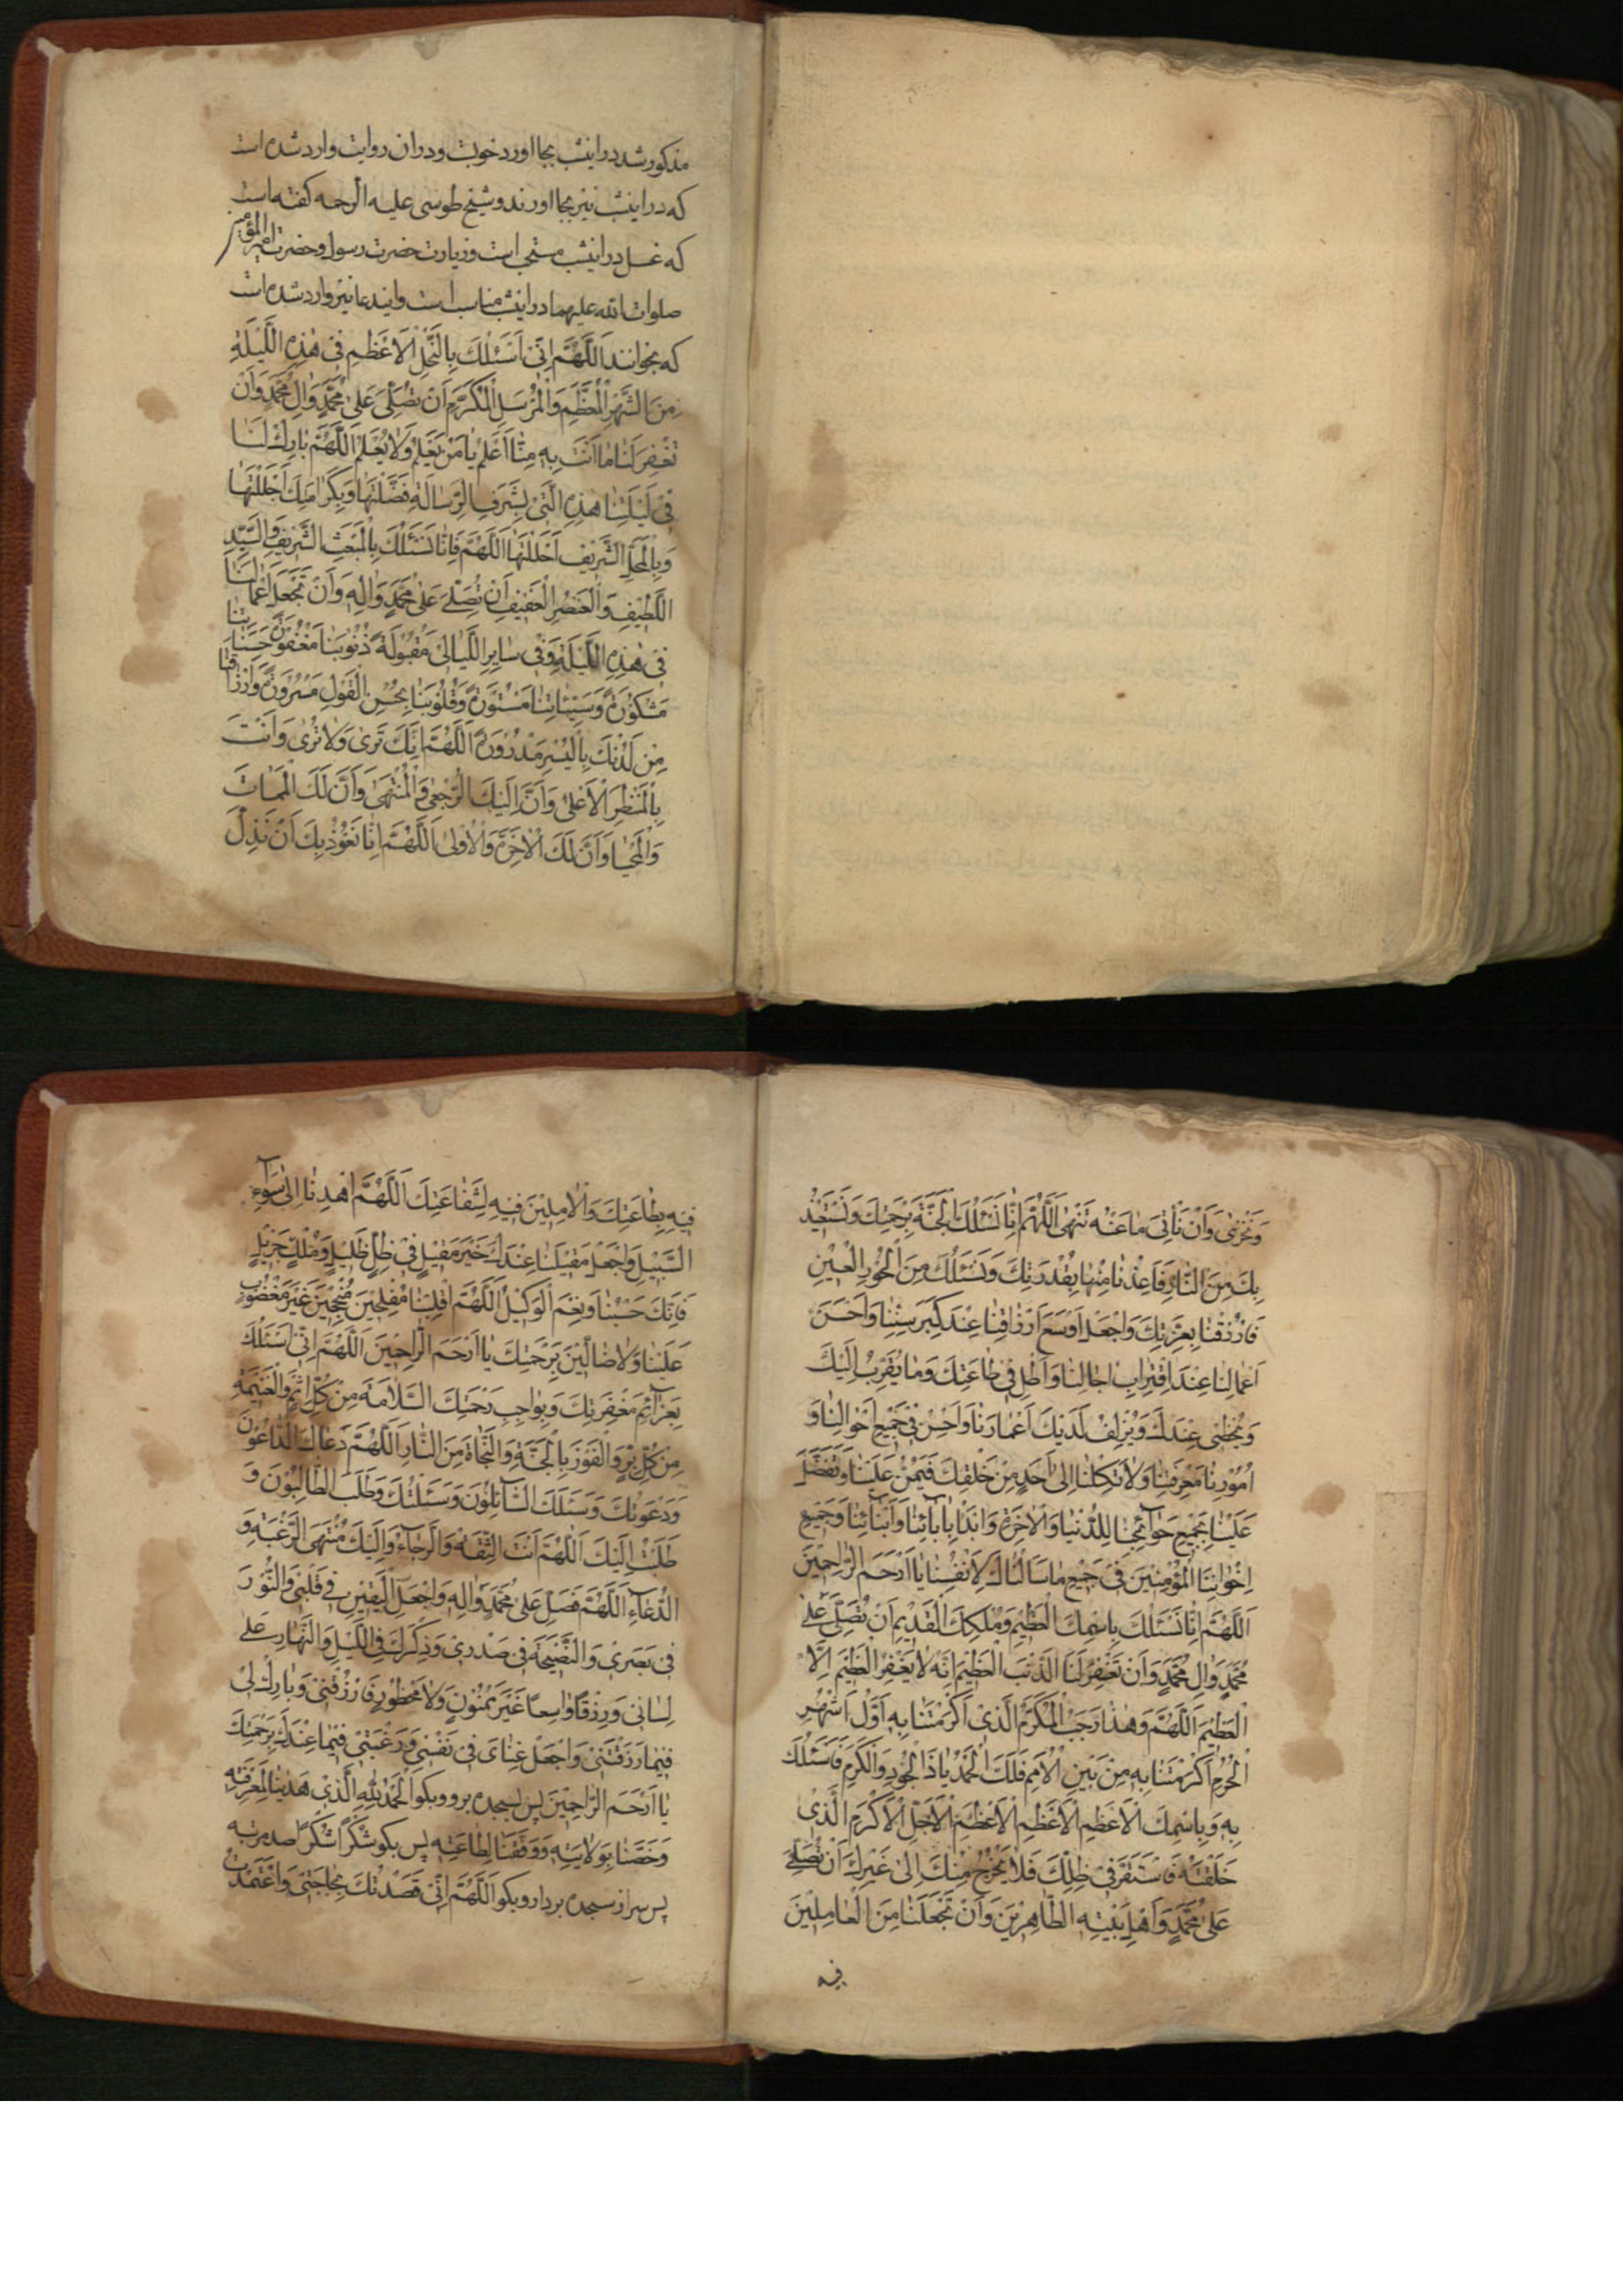 مذکور شد در اینشب بجا اورد خوبت و در ان روایت وارد شده است
که در اینشب نیز بجا اورند و شیخ طوسی علیه الرحمه کفته است
که غسل در اینشب مستحب است و زیارت حضرت رسول و حضرت امیر المؤمنین
صلوات الله علیهما در اینشب مناسب است و ایندعا نیز وارد شده است
که بخوانند اَللّٰهُمَّ اِنّی اَسْئَلُكَ بِالنَّجْلِ الْاَعْظَمِ فی هٰذِهِ اللَّیْلَةِ
مِنَ الشَّهْرِ الْمُعَظَّمِ وَالْمُرْسَلِ الْمُكَرَّمِ اَنْ تُصَلِّیَ عَلیٰ مُحَمَّدٍ وَاٰلِ مُحَمَّدٍ وَاَنْ
تَغْفِرَ لَنٰا مٰا اَنْتَ بِهِ مِنّٰا اَعْلَمُ یٰا مَنْ یَعْلَمُ وَلاٰ یُعْلَمُ اَللّٰهُمَّ بٰارِكْ لَنٰا
فی لَیْلَتِنٰا هٰذِهِ الَّتی بِشَرَفِ الرِّسٰالَةِ فَضَّلْتَهٰا وَبِكَرٰامَتِكَ اَجْلَلْتَهٰا
وَبِالْمَحَلِّ الشَّریفِ اَحْلَلْتَهٰا اَللّٰهُمَّ فَاِنّٰا نَسْئَلُكَ بِالْمَبْعَثِ الشَّریفِ وَالسَّیِّدِ
اللَّطیفِ وَالْعُنْصُرِ الْعَفیفِ اَنْ تُصَلِّیَ عَلیٰ مُحَمَّدٍ وَاٰلِهِ وَاَنْ تَجْعَلَ اَعْمٰالَنٰا
فی هٰذِهِ اللَّیْلَةِ وَفی سٰایِرِ اللَّیٰالی مَقْبُولَةً ذُنُوبَنٰا مَغْفُورَةً حَسَنٰاتِنٰا
مَشْكُورَةً وَسَیِّئٰاتِنٰا مَسْتُورَةً وَقُلُوبَنٰا بِحُسْنِ الْقَوْلِ مَسْرُورَةً وَاَرْزٰاقَنٰا
مِنْ لَدُنْكَ بِالْیُسْرِ مَدْرُورَةً اَللّٰهُمَّ اِنَّكَ تَریٰ وَلاٰ تُریٰ وَاَنْتَ
بِالْمَنْظَرِ الْاَعْلیٰ وَاَنَّ اِلَیْكَ الرُّجْعیٰ وَالْمُنْتَهیٰ وَاَنَّ لَكَ الْمَمٰاتَ
وَالْمَحْیٰا وَاَنَّ لَكَ الْاٰخِرَةَ وَالْاُولیٰ اَللّٰهُمَّ اِنّٰا نَعُوذُ بِكَ اَنْ نَذِلَّ
وَنَخْزیٰ وَاَنْ نَأْتِیَ مٰا عَنْهُ تَنْهیٰ اَللّٰهُمَّ اِنّٰا نَسْئَلُكَ الْجَنَّةَ بِرَحْمَتِكَ وَنَسْتَعیذُ
بِكَ مِنَ النّٰارِ فَاَعِذْنٰا مِنْهٰا بِقُدْرَتِكَ وَنَسْئَلُكَ مِنَ الْحُورِ الْعینِ
فَارْزُقْنٰا بِعِزَّتِكَ وَاجْعَلْ اَوْسَعَ اَرْزٰاقِنٰا عِنْدَ كِبَرِ سِنِّنٰا وَاَحْسَنَ
اَعْمٰالِنٰا عِنْدَ اقْتِرٰابِ اٰجٰالِنٰا وَاَطِلْ فی طٰاعَتِكَ وَمٰا یُقَرِّبُ اِلَیْكَ
وَیُحْظی عِنْدَكَ وَیُزْلِفُ لَدَیْكَ اَعْمٰارَنٰا وَاَحْسِنْ فی جَمیعِ اَحْوٰالِنٰا وَ
اُمُورِنٰا مَعْرِفَتَنٰا وَلاٰ تَكِلْنٰا اِلیٰ اَحَدٍ مِنْ خَلْقِكَ فَیَمُنَّ عَلَیْنٰا وَتَفَضَّلْ
عَلَیْنٰا بِجَمیعِ حَوٰائِجِنٰا لِلدُّنْیٰا وَالْاٰخِرَةِ وَابْدَأْ بِاٰبٰائِنٰا وَاَبْنٰائِنٰا وَجَمیعِ
اِخْوٰانِنَا الْمُؤْمِنینَ فی جَمیعِ مٰا سَاَلْنٰاكَ لِاَنْفُسِنٰا یٰا اَرْحَمَ الرّٰاحِمینَ
اَللّٰهُمَّ اِنّٰا نَسْئَلُكَ بِاسْمِكَ الْعَظیمِ وَمُلْكِكَ الْقَدیمِ اَنْ تُصَلِّیَ عَلیٰ
مُحَمَّدٍ وَاٰلِ مُحَمَّدٍ وَاَنْ تَغْفِرَ لَنَا الذَّنْبَ الْعَظیمَ اِنَّهُ لاٰ یَغْفِرُ الْعَظیمَ اِلَّا
الْعَظیمُ اَللّٰهُمَّ وَهٰذٰا رَجَبُ الْمُكَرَّمُ الَّذی اَكْرَمْتَنٰا بِهِ اَوَّلُ اَشْهُرِ
الْحُرُمِ اَكْرَمْتَنٰا بِهِ مِنْ بَیْنِ الْاُمَمِ فَلَكَ الْحَمْدُ یٰا ذَا الْجُودِ وَالْكَرَمِ فَاَسْئَلُكَ
بِهِ وَبِاسْمِكَ الْاَعْظَمِ الْاَعْظَمِ الْاَعْظَمِ الْاَجَلِّ الْاَكْرَمِ الَّذی
خَلَقْتَهُ فَاسْتَقَرَّ فی ظِلِّكَ فَلاٰ یَخْرُجُ مِنْكَ اِلیٰ غَیْرِكَ اَنْ تُصَلِّیَ
عَلیٰ مُحَمَّدٍ وَاَهْلِ بَیْتِهِ الطّٰاهِرینَ وَاَنْ تَجْعَلَنٰا مِنَ الْعٰامِلینَ
فیه
فیهِ بِطٰاعَتِكَ وَالْاٰمِلینَ فیهِ لِشَفٰاعَتِكَ اَللّٰهُمَّ اهْدِنٰا اِلیٰ سَوٰاءِ
السَّبیلِ وَاجْعَلْ مَقیلَنٰا عِنْدَكَ خَیْرَ مَقیلٍ فی ظِلٍّ ظَلیلٍ وَمُلْكٍ جَزیلٍ
فَاِنَّكَ حَسْبُنٰا وَنِعْمَ الْوَكیلُ اَللّٰهُمَّ اقْلِبْنٰا مُفْلِحینَ مُنْجِحینَ غَیْرَ مَغْضُوبٍ
عَلَیْنٰا وَلاٰ ضٰالّینَ بِرَحْمَتِكَ یٰا اَرْحَمَ الرّٰاحِمینَ اَللّٰهُمَّ اِنّی اَسْئَلُكَ
بِعَزٰائِمِ مَغْفِرَتِكَ وَبِوٰاجِبِ رَحْمَتِكَ السَّلاٰمَةَ مِنْ كُلِّ اِثْمٍ وَالْغَنیمَةَ
مِنْ كُلِّ بِرٍّ وَالْفَوْزَ بِالْجَنَّةِ وَالنَّجٰاةَ مِنَ النّٰارِ اَللّٰهُمَّ دَعٰاكَ الدّٰاعُونَ
وَدَعَوْتُكَ وَسَئَلَكَ السّٰائِلُونَ وَسَئَلْتُكَ وَطَلَبَ الطّٰالِبُونَ وَ
طَلَبْتُ اِلَیْكَ اَللّٰهُمَّ اَنْتَ الثِّقَةُ وَالرَّجٰاءُ وَاِلَیْكَ مُنْتَهَی الرَّغْبَةِ وَ
الدُّعٰاءِ اَللّٰهُمَّ فَصَلِّ عَلیٰ مُحَمَّدٍ وَاٰلِهِ وَاجْعَلِ الْیَقینَ فی قَلْبی وَالنُّورَ
فی بَصَری وَالنَّصیحَةَ فی صَدْری وَذِكْرَكَ فِی اللَّیْلِ وَالنَّهٰارِ عَلیٰ
لِسٰانی وَرِزْقاً وٰاسِعاً غَیْرَ مَمْنُونٍ وَلاٰ مَحْظُورٍ فَارْزُقْنی وَبٰارِكْ لی
فیمٰا رَزَقْتَنی وَاجْعَلْ غِنٰایَ فی نَفْسی وَرَغْبَتی فیمٰا عِنْدَكَ بِرَحْمَتِكَ
یٰا اَرْحَمَ الرّٰاحِمینَ پس بسجده برو وبکو اَلْحَمْدُ لِلّٰهِ الَّذی هَدٰینٰا لِمَعْرِفَتِهِ
وَخَصَّنٰا بِوِلاٰیَتِهِ وَوَفَّقَنٰا لِطٰاعَتِهِ پس بکو شُكْراً شُكْراً صد مرتبه
پس سر از سجده بردار وبکو اَللّٰهُمَّ اِنّی قَصَدْتُكَ بِحٰاجَتی وَاعْتَمَدْتُ